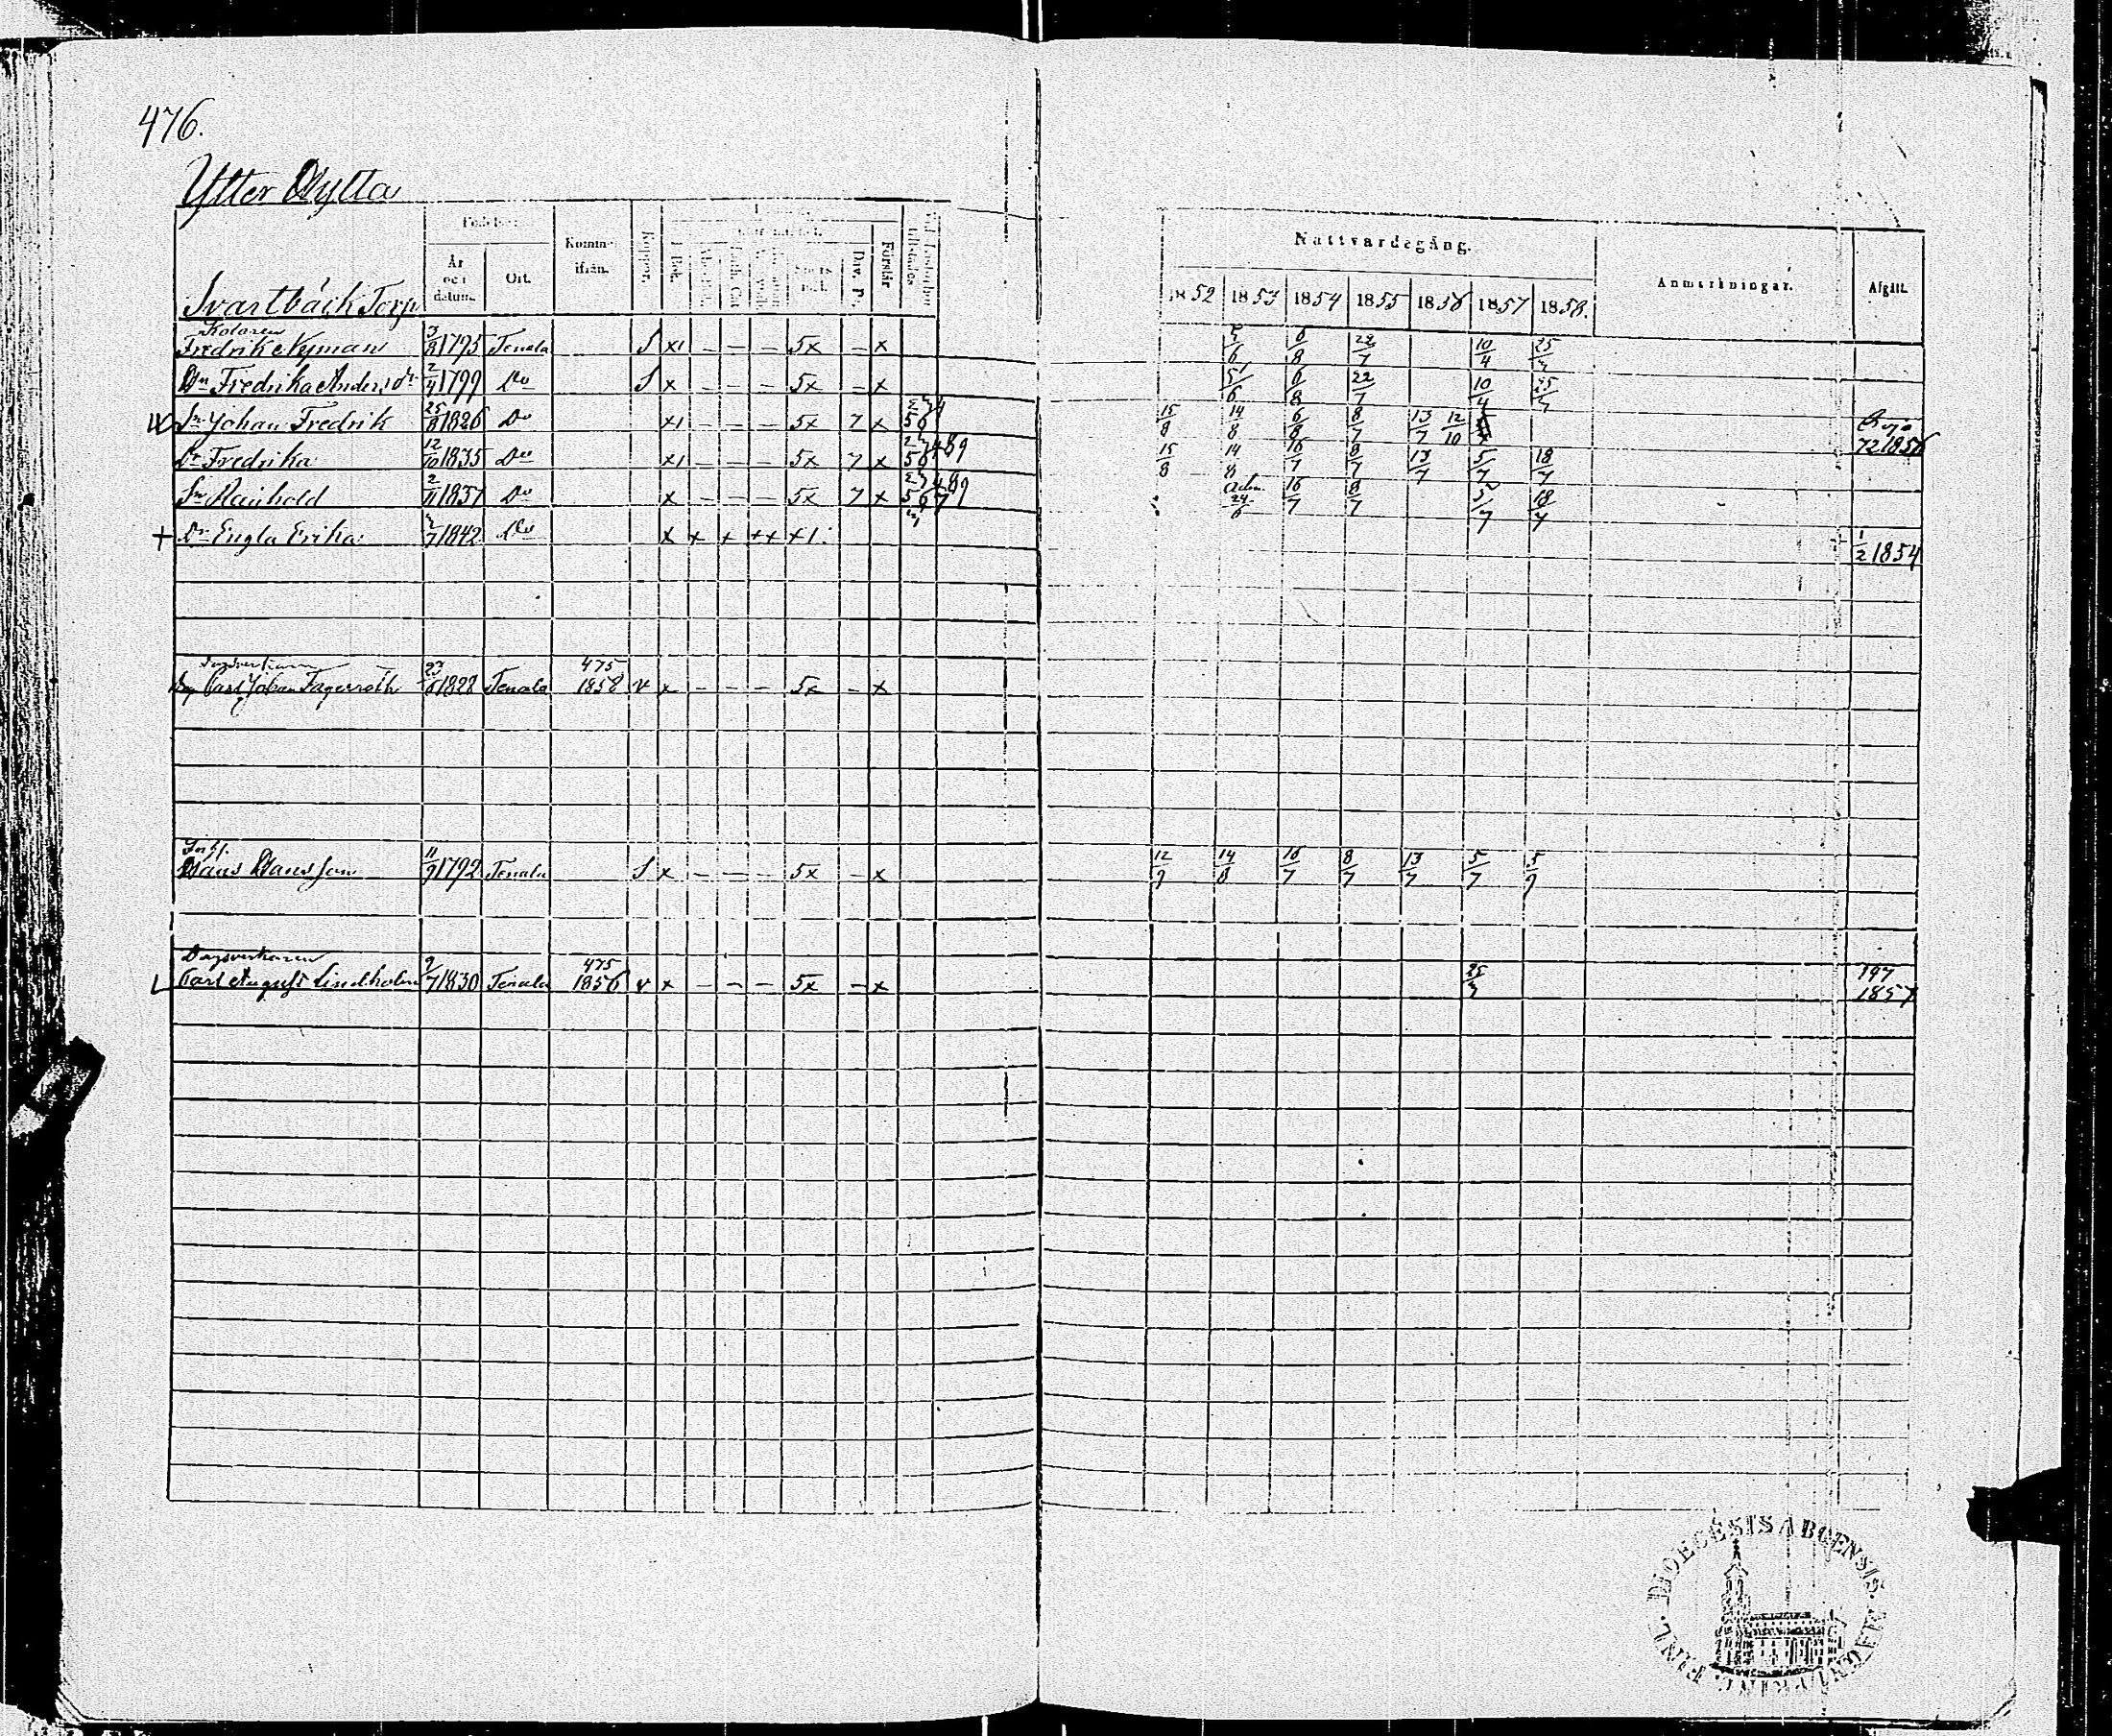 476.
Ytter Kylla
Födelse Kommit ifrån. Koppor. I Bok. Förstår
År och datum. Ort. Div. P.
Nattvardsgång. Anmärkningar. Afgått.
1852 1853 1854 1855 1856 1857 1858.
Svartbäck Torp
Kolaren
Fredrik Nyman 3/8 1795 Tenala S x1 – – – 5x – x 5/6 6/8 22/7 10/4 25/
Hu Fredrika Andersdr 2/4 1799 Do S x – – – 5x – x 5/6 6/8 22/7 10/4 25/
Sn Johan Fredrik 25/8 1826 Do x1 – – – 5x 7 x 15/8 14/8 6/8 8/7 13/7 12/10
72 1856
Dr Fredrika 12/10 1835 Do x1 – – – 5x 7 x 15/8 14/8 16/7 8/7 13/7 5/7 18/7
Sn Rainhold 2/11 1837 Do x – – – 5x 7 x Adm. 24/6 16/7 8/7 5/7 18/7
+ Dr Engla Erika 7 1842 Do x x x ++ +1. + 1/2 1854
475
Carl Johan Fagerroth 23/6 1828 Tenala 1858 v x – – – 5x – x
Hans Hansson 11/9 1792 Tenala S x – – – 5x – x 12/9 14/8 16/7 8/7 13/7 5/7 5/9
Dagsverkaren 475 197
Carl August Lindholm 9/7 1830 Tenala 1856 v x – – – 5x – x 25/ 1857
DIOECESIS ABOENSIS
FINL.